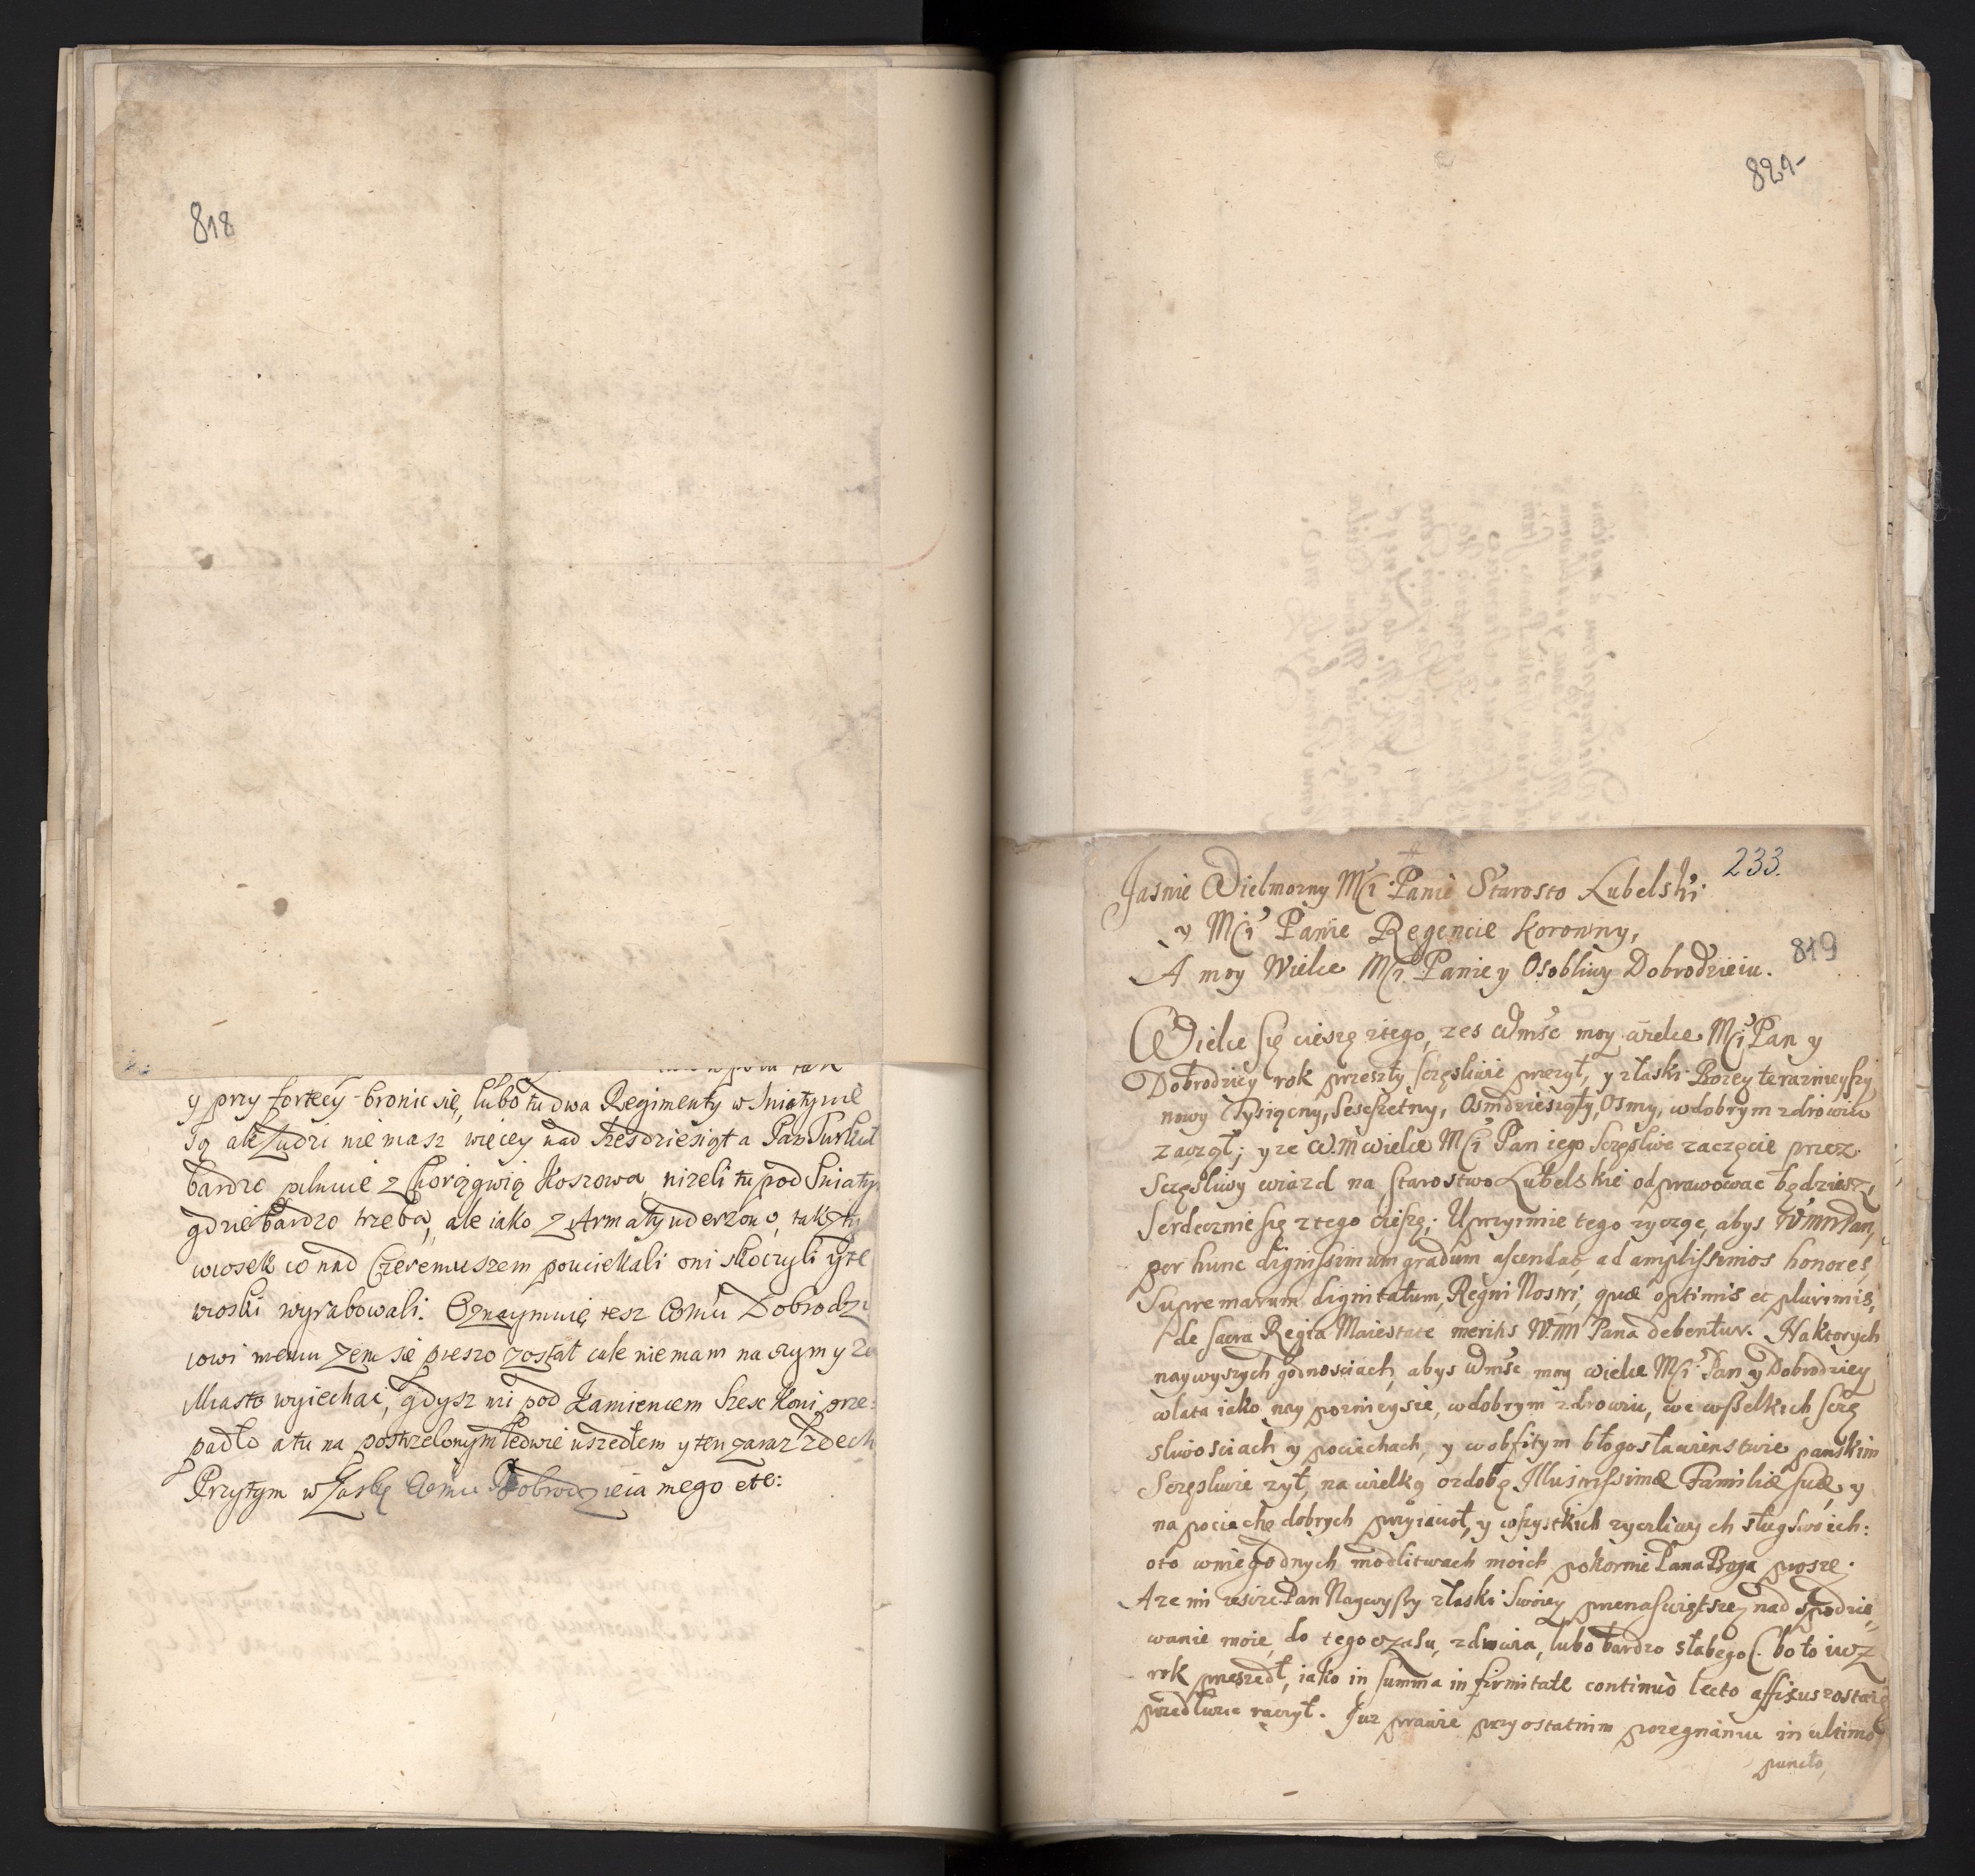 818
y przy fortecy bronic się, lubo tu dwa Regimenty w Sniatynie
są ale Ludzi nie masz więcey nad szesdziesiąt a Pan Turkuł
bardzo pilnuie z Chorągwią Koszowa nizeli tu pod Sniatyn
gdzie bardzo trzeba, ale iako z Armaty uderzono, tak z ty
wiosek co nad Czeremuszem pouciekali oni skoczyli y te
wioski wyrabowali. Oznaymuię tesz Wmu Dobrodzi
iowi memu zem się pieszo został cale nie mam na czym y za
Miasto wyiechac, gdysz mi pod Kamiencem szesc koni prze:
padło a tu na postrzelonym ledwie uszedłem y ten zaraz zdech
Przytym w łaskę Wmu Dobrodzieia mego etc:
821
233.
Jasnie Wielmozny Mci Panie Starosto Lubelski
y Mci Panie Regencie Koronny,
819
A moy Wielce Mci Panie y Osobliwy Dobrodzieiu.
Wielce się cieszę ztego, zes Wmsc moy wielce Mci Pan y
Dobrodziey rok przeszły sczęsliwie przezył, y złaski Bozey teraznieyszy
nowy Tysiącny, Sescsetny, Osmdziesiąty, Osmy, wdobrym zdrowiu
zaczął; y ze W.M wielce Mci Pan iego sczęsliwe zaczęcie przez
sczęsliwy wiazd na Starostwo Lubelskie odprawowac będziesz,
serdecznie się ztego cieszę: Uprzymie tego zyczę, abys WMM Pan,
per hunc dignissimum gradum ascendat ad amplissimos honores,
Supremarum dignitatum, Regni Nostri, quæ optimis et plurimis,
de sacra Regia Maiestate meritis WMM Pana debentur. Na ktorych
naywyszych godnosciach, abys Wmsc moy wielce Mci Pan y Dobrodziey
wlata iako nay poznieysie, wdobrym zdrowiu, we wszelkich sczę
sliwosciach y pociechach, y wobfitym błogosławienstwie panskim
Sczęsliwie zył, na wielką ozdobę Illustrissimæ Familiæ suæ, y
na pociechę dobrych przyiacioł, y wszystkich zyczliwych sług swoich:
oto wniegodnych modlitwach moich pokornie Pana Boga proszę.
A ze mi iesicze Pan Naywyszy złaski swoiey przenaswiętszey nad spodzie
wanie moie, do tego czasu, zdrowia, lubo bardzo słabego (bo to iuz
rok przeszedł, iako in summa infirmitate continuò lecto affixus zostaię
przedłuzic raczył. Juz prawie przy ostatnim pozegnaniu in ultimo
puncto,